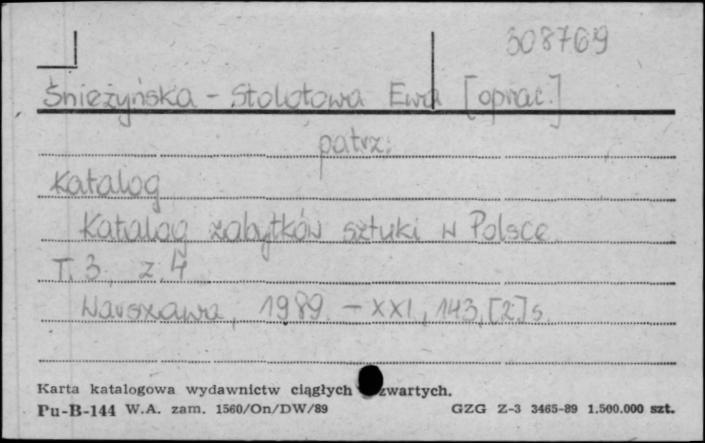 308769
Śnieżyńska - Stolotowa Ewa [oprac.]
patrz:
Katalog
Katalog zabytków sztuki w Polsce.
T. 3, z. 4
Warszawa, 1989. - XXI, 143, [2] s.
Karta katalogowa wydawnictw ciągłych zwartych.
Pu-B-144 W.A. zam. 1560/On/DW/89 GZG Z-3 3465-89 1.500.000 szt.